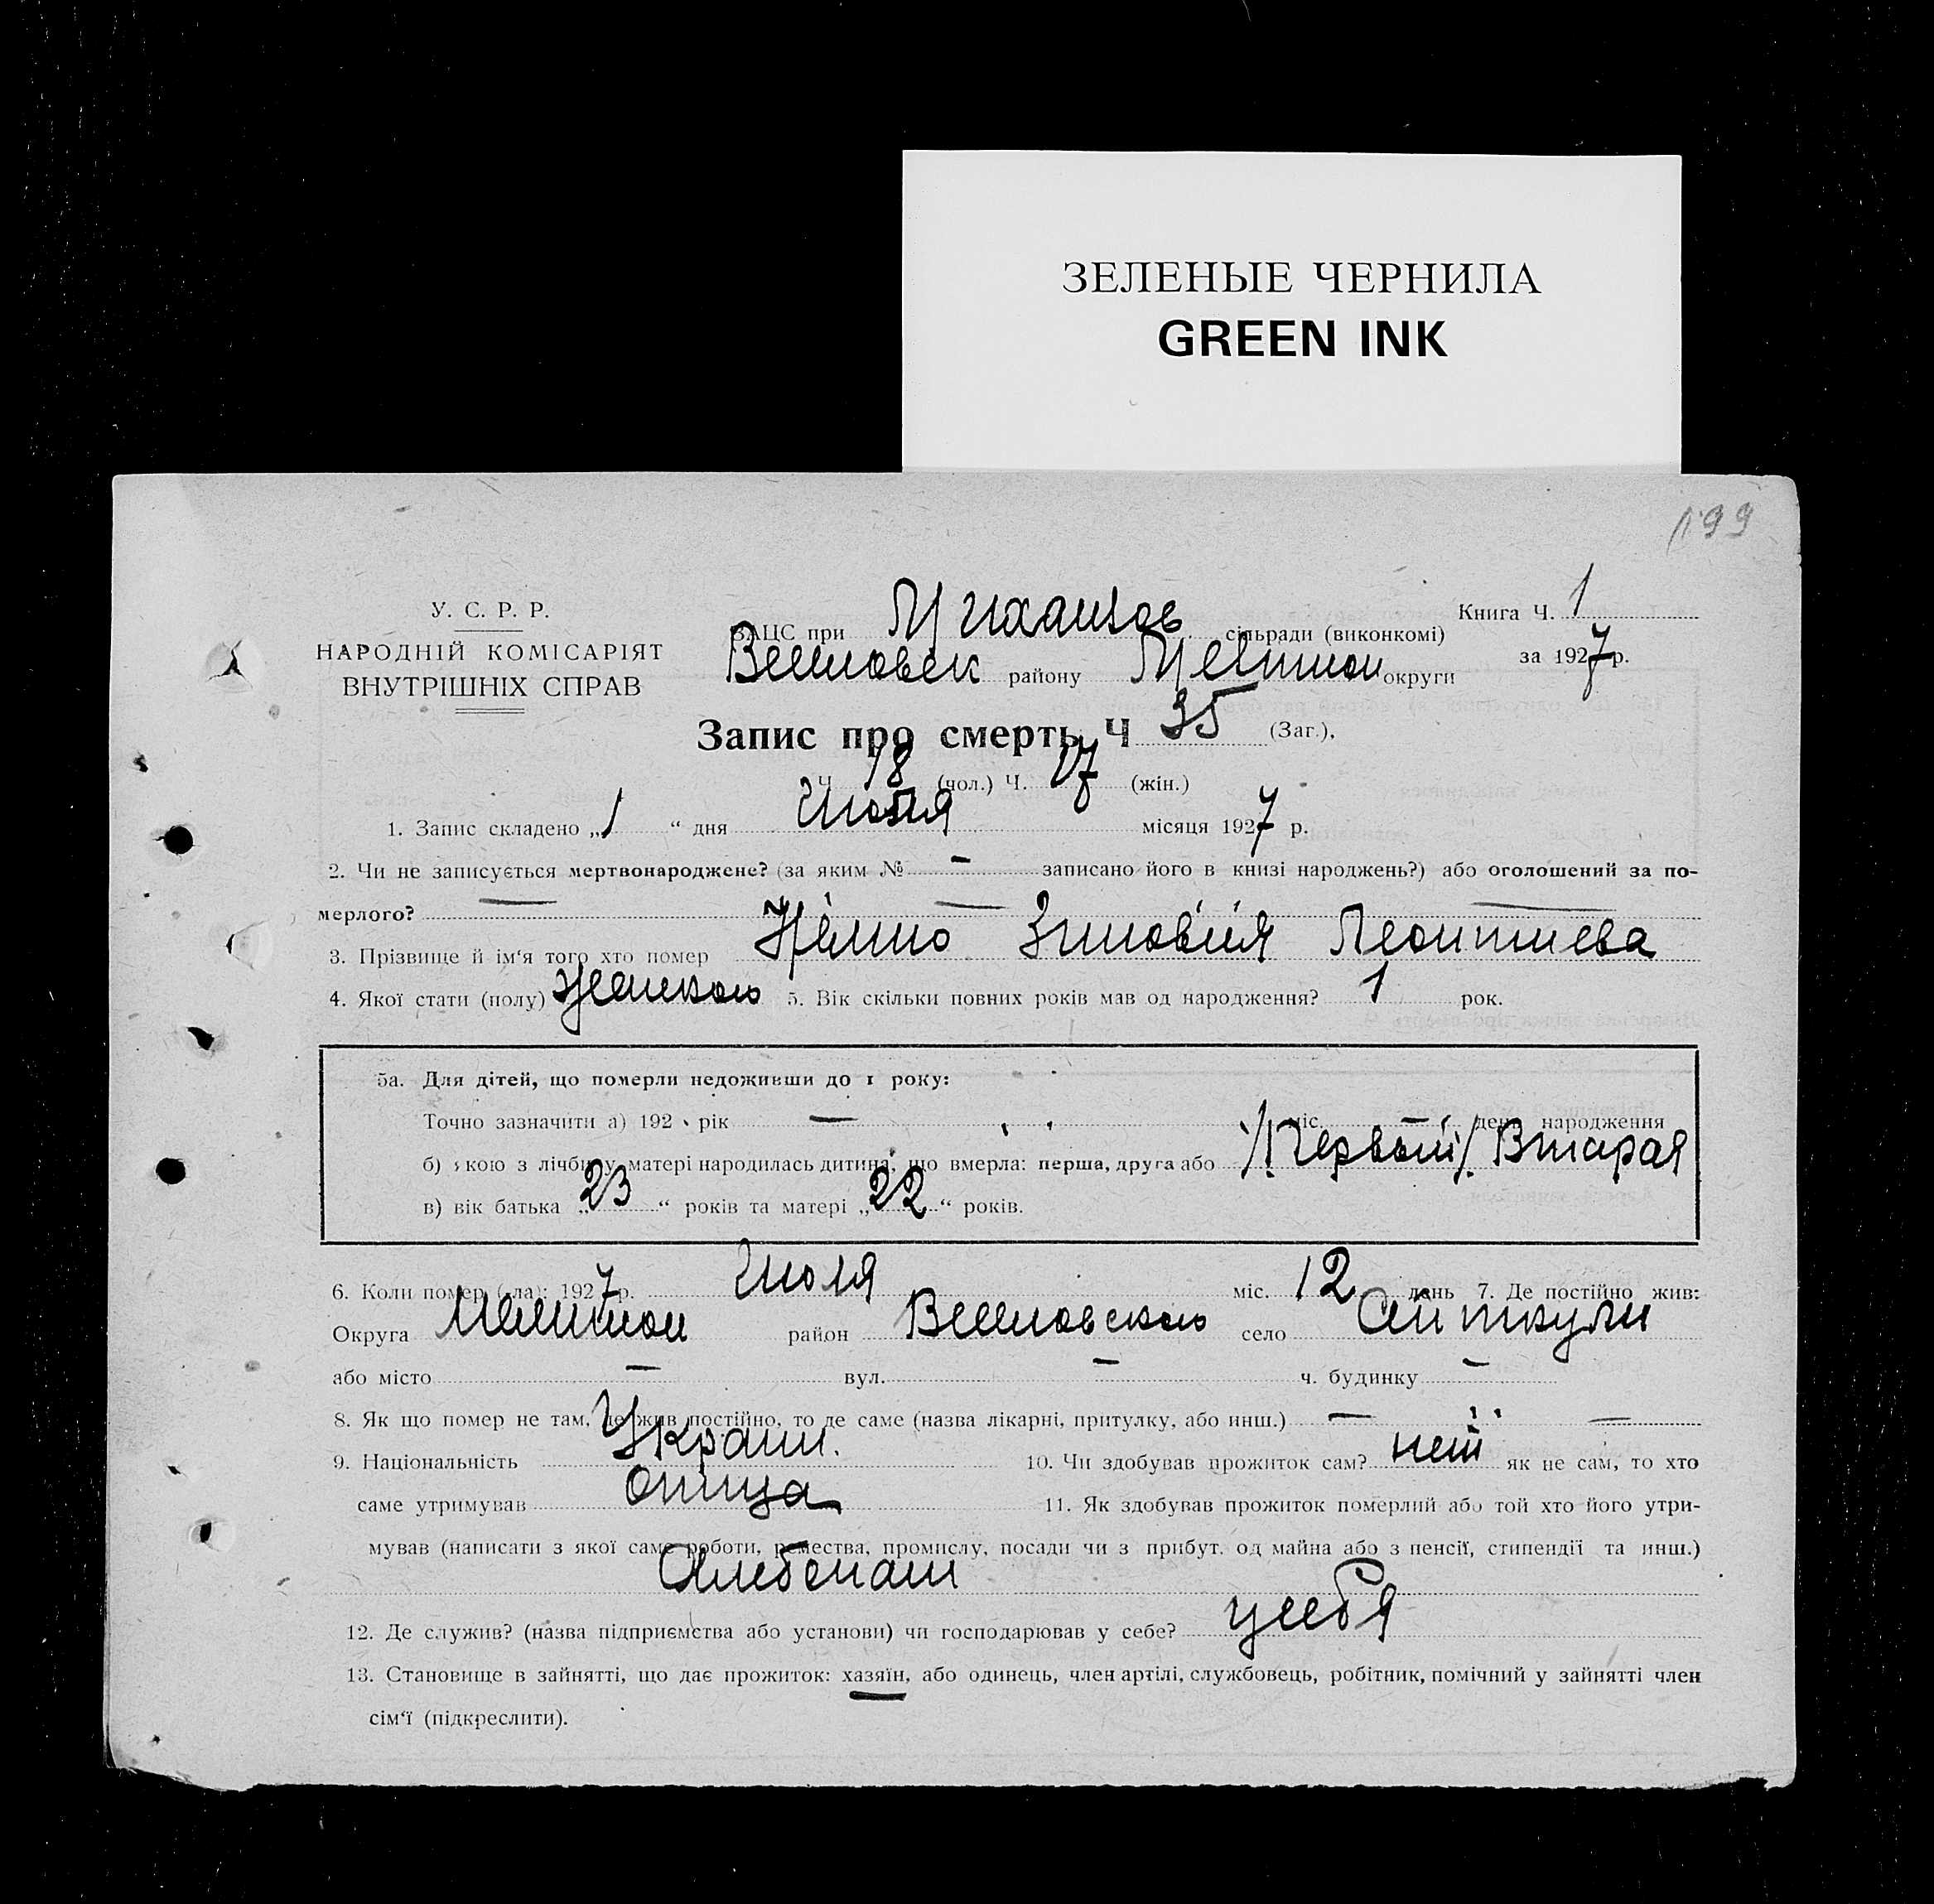 ЗЕЛЕНЫЕ ЧЕРНИЛА
GREEN INK
199
У. С. Р. Р.
НАРОДНІЙ КОМІСАРІЯТ
ВНУТРІШНІХ СПРАВ
ЗАЦС при Михайлов сільради (виконкомі)
Книга Ч. 1
району округи
за 1927 р.
Запис про смерть Ч 35 (Заг.).
Ч. 18 (чол.) Ч. 17 (жін.)
1. Запис складено „1“ дня місяця 1927 р.
2. Чи не записується мертвонароджене? (за яким № — записано його в книзі народжень?) або оголошений за по-
мерлого? — — —
3. Прізвище й ім‘я того хто помер Зиновия Леонтиева
4. Якої стати (полу) женского 5. Вік скільки повних років мав од народження? 1 рок.
5а. Для дітей, що померли недоживши до 1 року:
Точно зазначити а) 192 рік — міс. день народження
б) якою з лічби у матері народилась дитина, що вмерла: перша, друга або /Первый/ Вторая
в) вік батька „23“ років та матері „22“ років.
6. Коли помер (ла): 1927 р. Июля міс. 12 день 7. Де постійно жив:
Округа район село
або місто — вул. — ч. будинку —
8. Як що помер не там, де жив постійно, то де саме (назва лікарні, притулку, або инш.) — —
9. Національність Украин. 10. Чи здобував прожиток сам? нет як не сам, то хто
саме утримував отица 11. Як здобував прожиток померлий або той хто його утри-
мував (написати з якої саме роботи, ремества, промислу, посади чи з прибут. од майна або з пенсії, стипендії та инш.)
Хлебопаш
12. Де служив? (назва підприємства або установи) чи господарював у себе? усебя
13. Становище в зайнятті, що дає прожиток: хазяїн, або одинець, член артілі, службовець, робітник, помічний у зайнятті член
сім‘ї (підкреслити).